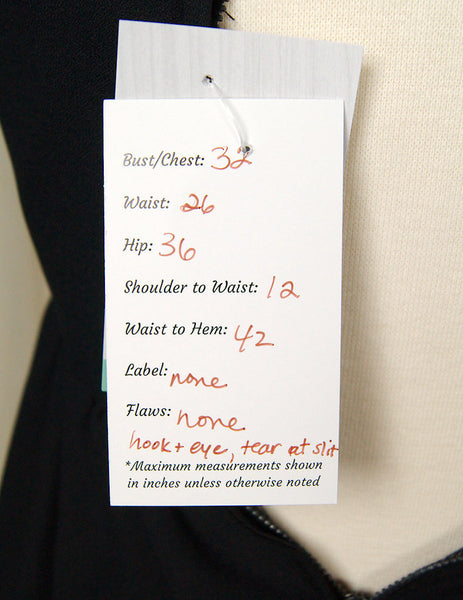 Bust/Chest: 32
Waist: 26
Hip: 36
Shoulder to Waist: 12
Waist to Hem: 42
Label: none
Flaws: none
hook + eye, tear at slit
*Maximum measurements shown
in inches unless otherwise noted